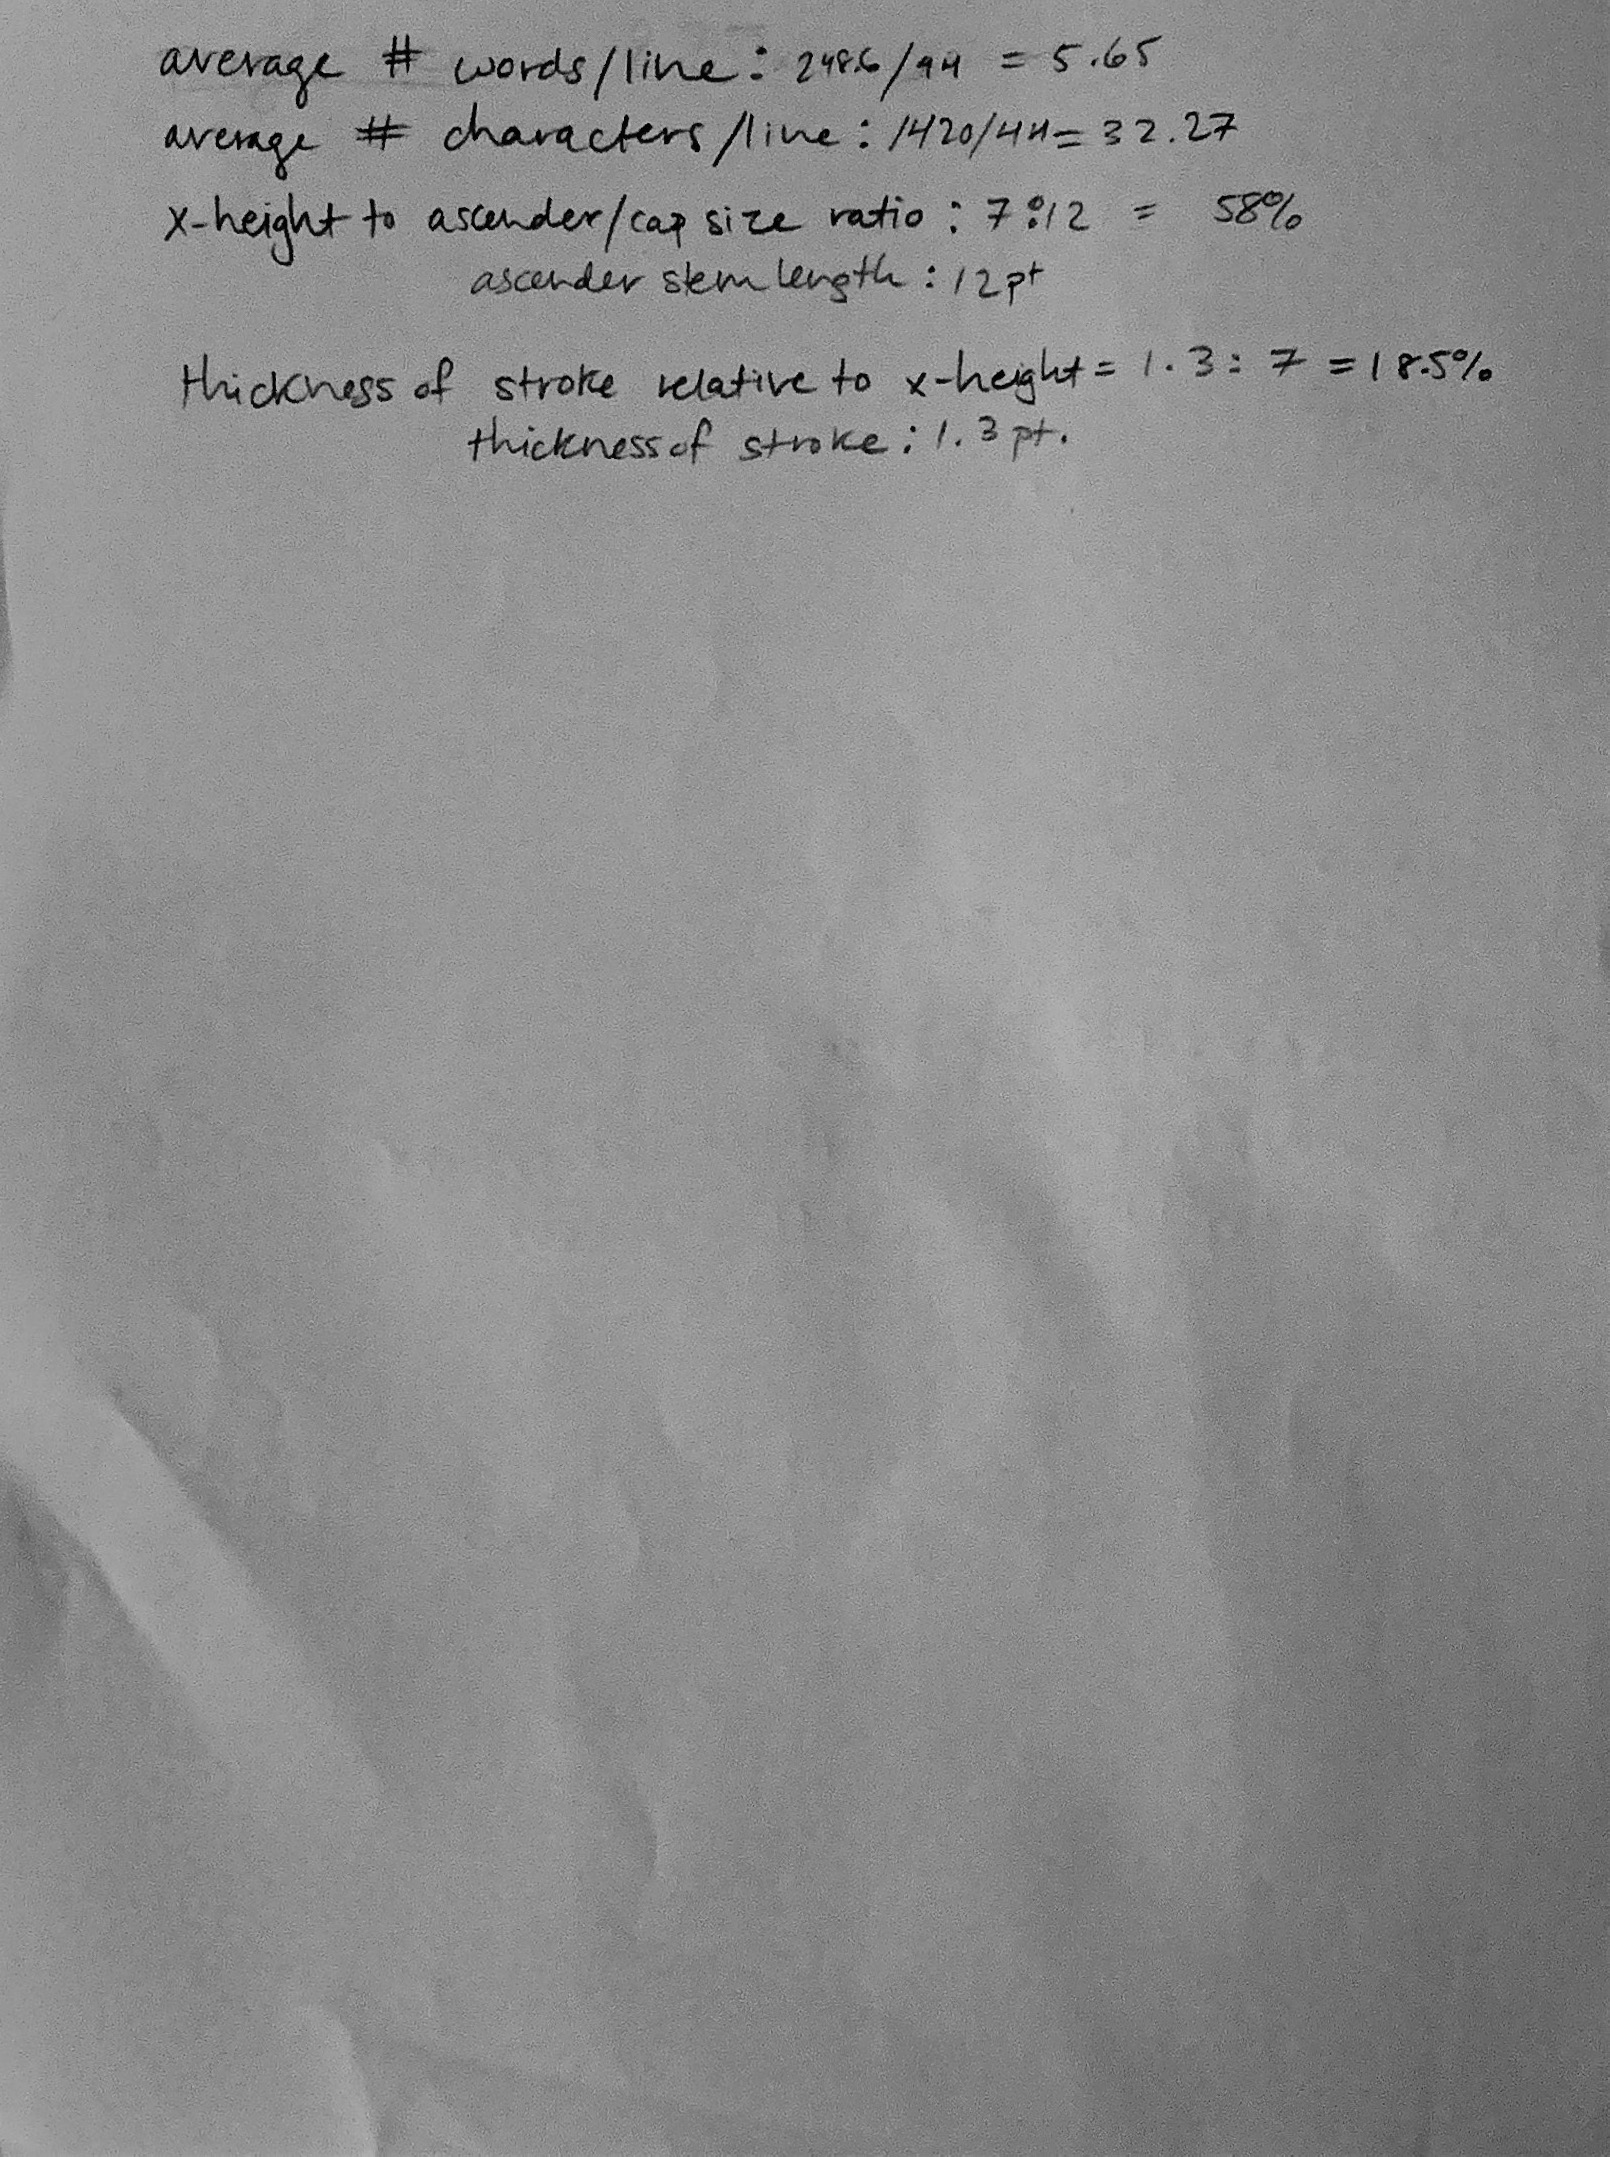 average # words/line: 248.6/44 = 5.65
average # characters/line: 1420/44 = 32.27
x-height to ascender/cap size ratio: 7:12 = 58%
ascender stem length: 12pt
thickness of stroke relative to x-height = 1.3:7 = 18.5%
thickness of stroke: 1.3 pt.